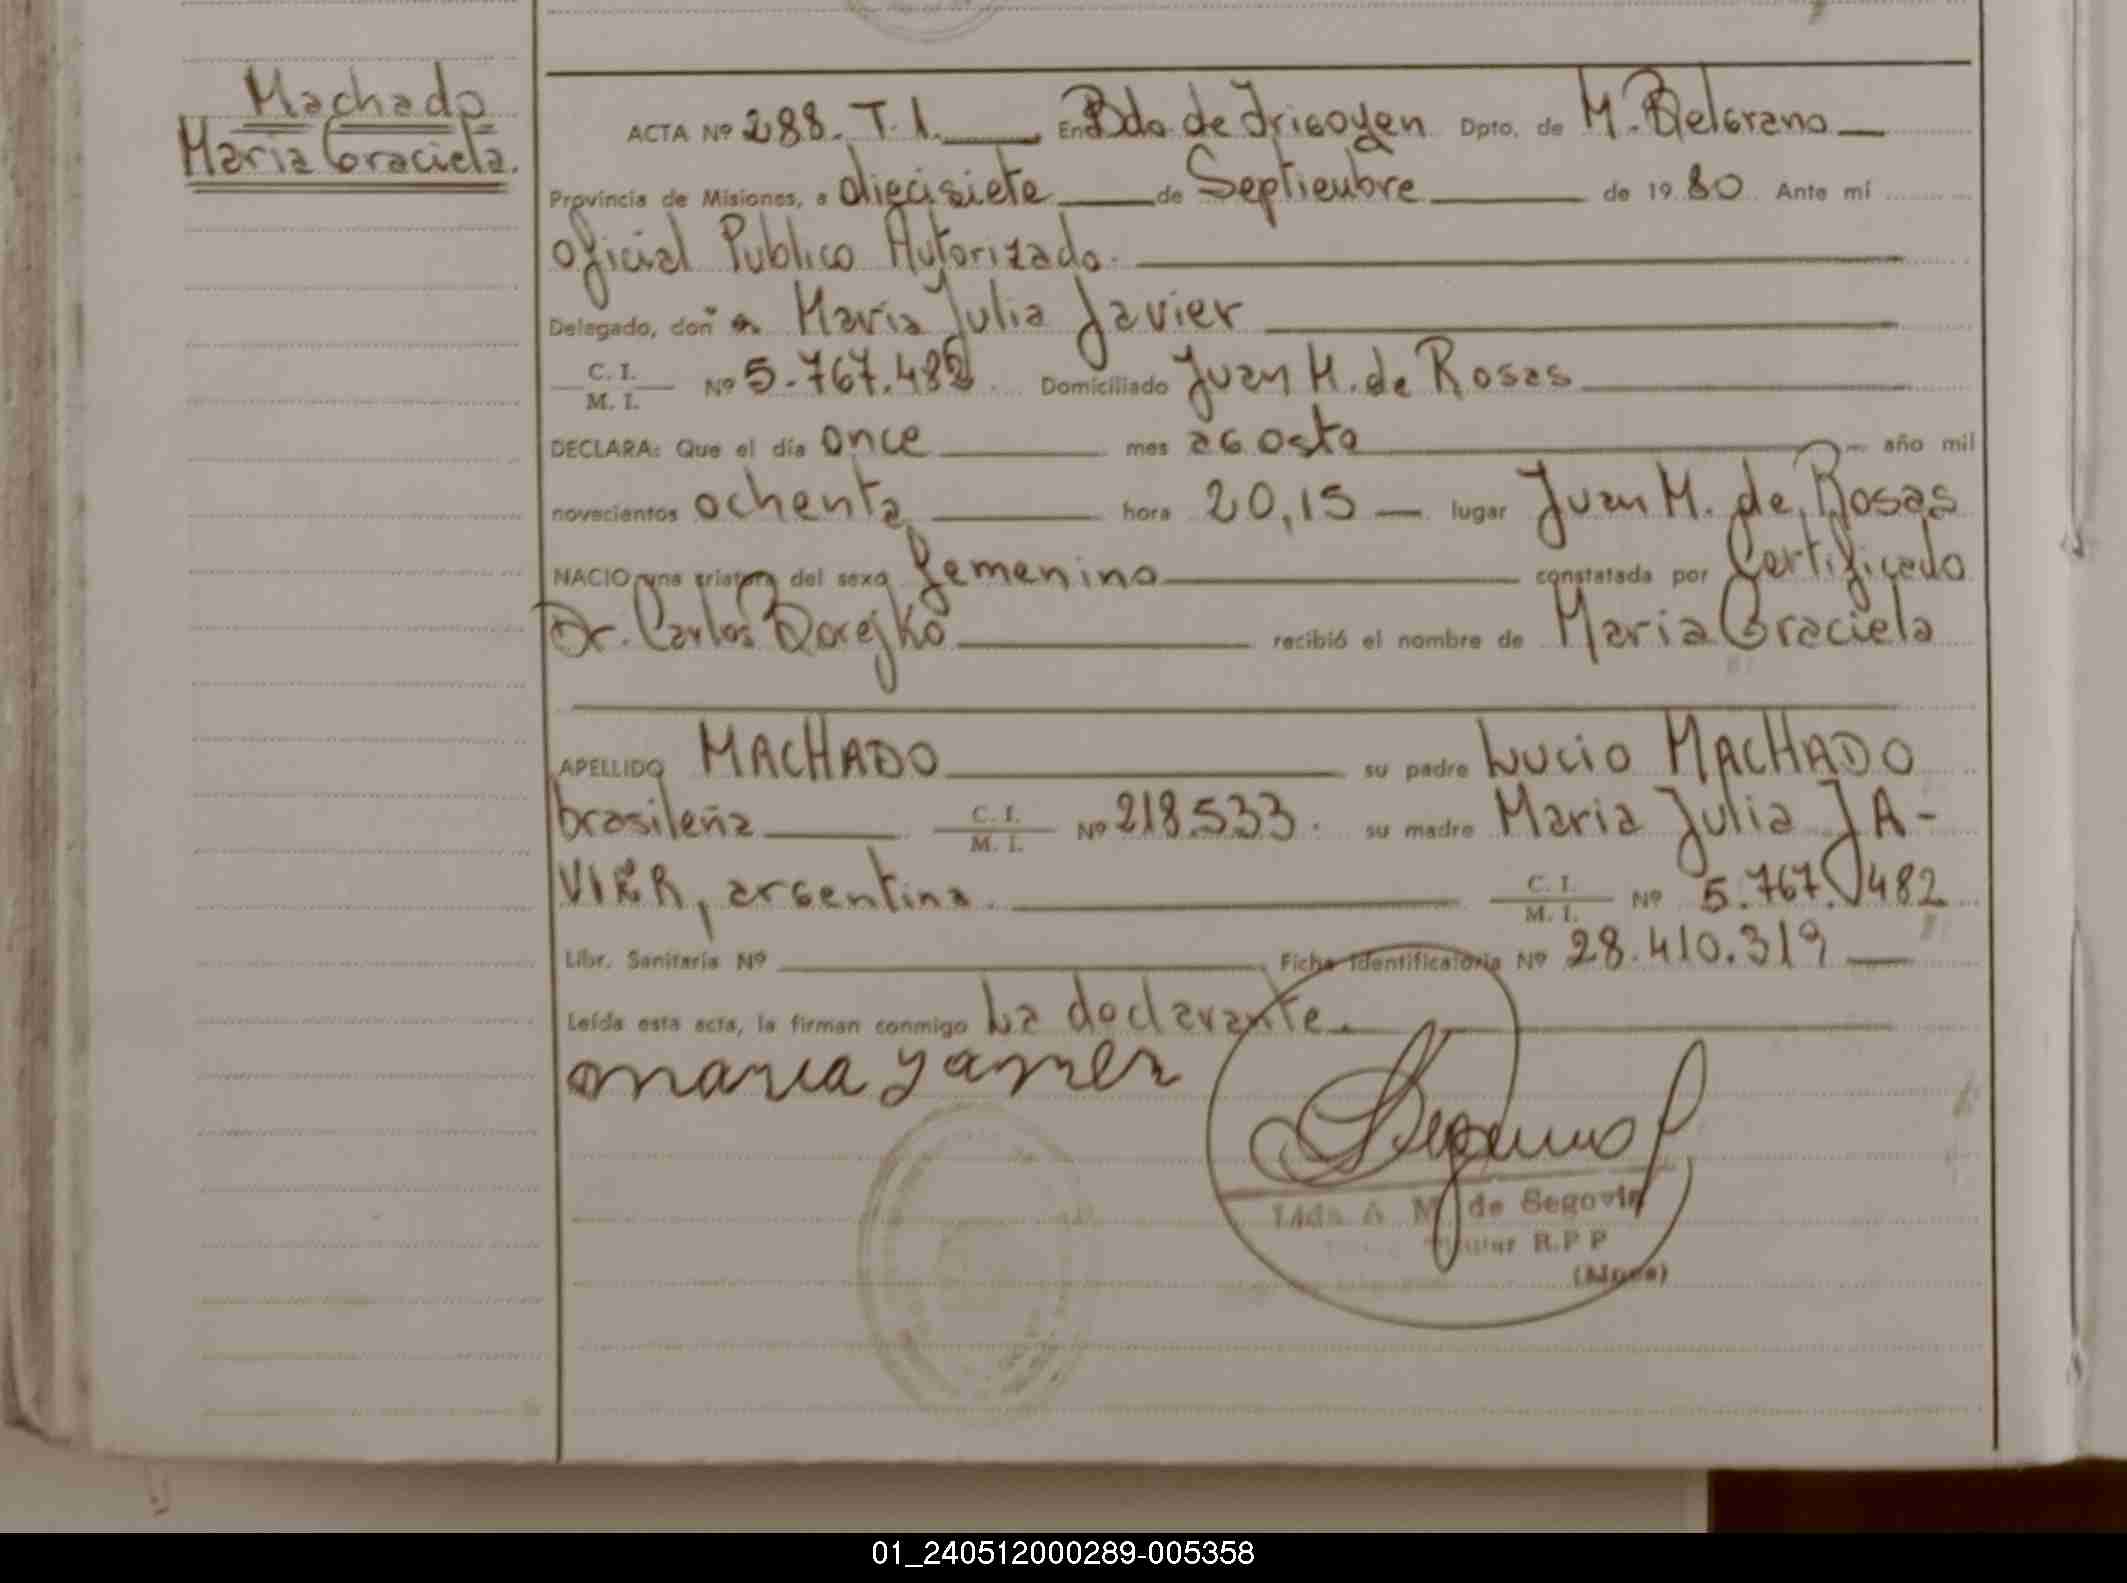 Machado
Maria Graciela.
ACTA Nº 288. T. 1. En Bdo de Irigoyen Dpto. de M. Belgrano
Provincia de Misiones, a diecisiete de Septiembre de 1980 Ante mí
Oficial Publico Autorizado.
Delegado, doña Maria Julia Javier
C. I.
M. I. Nº 5.767.482 Domiciliado Juan M. de Rosas
DECLARA: Que el día once mes agosto año mil
novecientos ochenta hora 20,15 lugar Juan M. de Rosas
NACIO una criatura del sexo femenino constatada por Certificado
Dr. Carlos Dorejko recibió el nombre de Maria Graciela
APELLIDO MACHADO su padre Lucio MACHADO
brasileña C. I. M. I. Nº 218.533. su madre Maria Julia JA-
VIER, argentina. C. I. M. I. Nº 5.767.482
Libr. Sanitaria Nº Ficha Identificatoria Nº 28.410.319
Leída esta acta, la firman conmigo La declarante.
maria Javier
A. M. de Segovia
Titular R.P P
(Mnes)
01_240512000289-005358